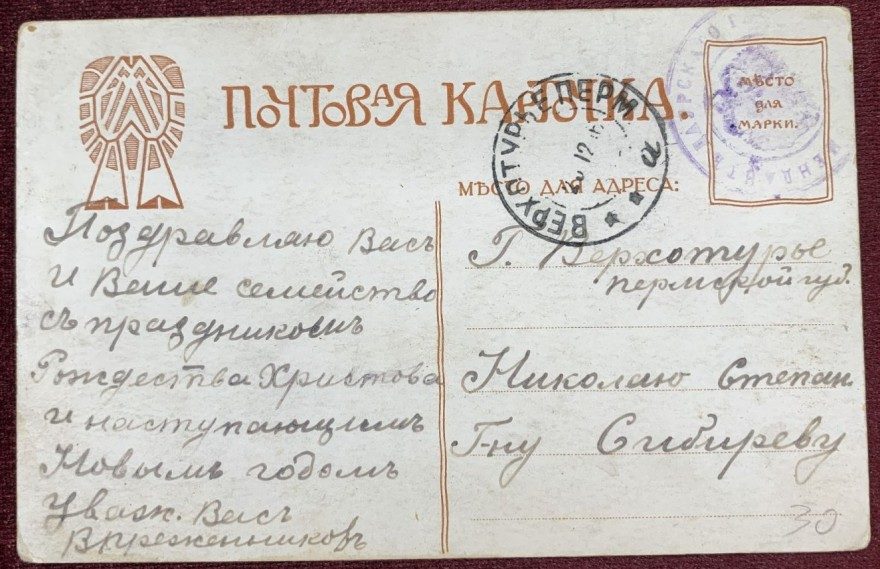 ПОЧТОВАЯ КАРТОЧКА.
МѢСТО
ДЛЯ
МАРКИ.
ВЕРХОТУРЬЕ ПЕРМ
12
а
МѢСТО ДЛЯ АДРЕСА:
Поздравляю Васъ
и Ваше семейство
съ праздникомъ
Рождества Христова
и наступающимъ
Новымъ годомъ
Уваж. Васъ
Г. Верхотурье
пермской губ.
Николаю Степан.
Г-ну Сибиреву
30